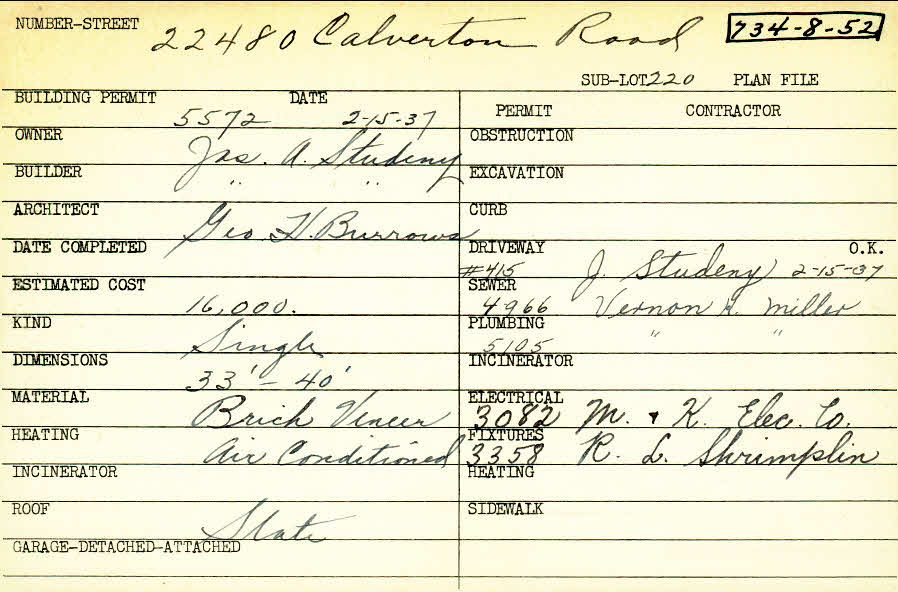 NUMBER-STREET 22480 Calverton Road 734-8-52
SUB-LOT 220 PLAN FILE
BUILDING PERMIT 5572 DATE 2-15-37
OWNER Jas. A. Studeny
BUILDER " "
ARCHITECT Geo. H. Burrows
DATE COMPLETED
ESTIMATED COST 16,000.
KIND Single
DIMENSIONS 33' - 40'
MATERIAL Brick Veneer
HEATING Air Conditioned
INCINERATOR
ROOF Slate
GARAGE-DETACHED-ATTACHED
PERMIT CONTRACTOR
OBSTRUCTION
EXCAVATION
CURB
DRIVEWAY O.K.
#415 J. Studeny 2-15-37
SEWER
4966 Vernon H. Miller
PLUMBING
5105 " "
INCINERATOR
ELECTRICAL
3082 M. & K. Elec. Co.
FIXTURES
3358 R. L. Shrimplin
HEATING
SIDEWALK